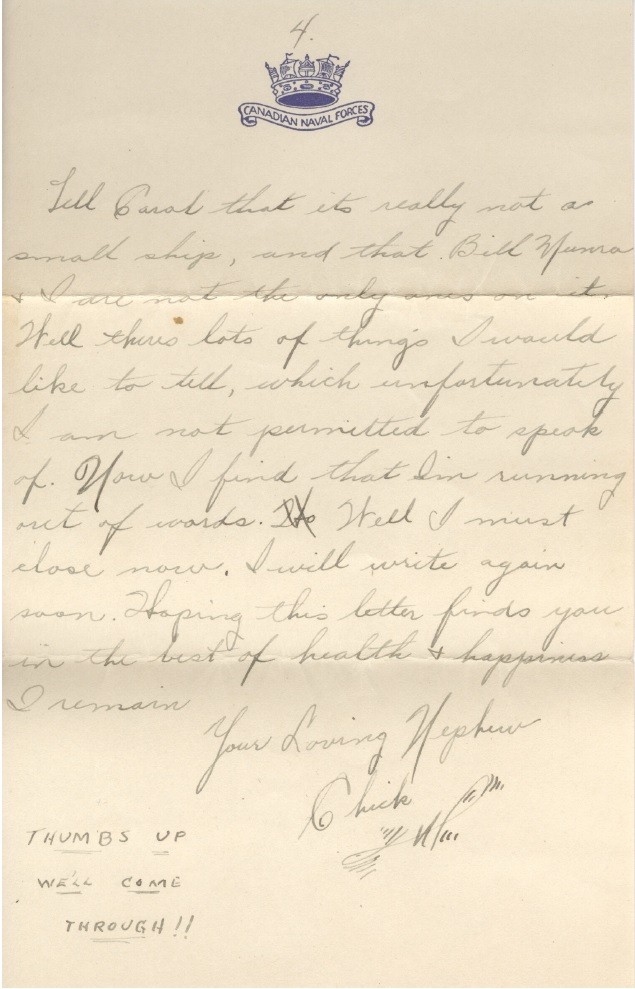 4.
CANADIAN NAVAL FORCES
Tell Carol that its really not a
small ship, and that Bill Munro
& I are not the only ones on it.
Well thers lots of things I would
like to tell, which unfortunately
I am not permitted to speak
of. Now I find that I'm running
out of words. Well I must
close now. I will write again
soon. Hoping this letter finds you
in the best of health & happiness
I remain
Your Loving Nephew
Chick
THUMBS UP
WE'LL COME
THROUGH!!